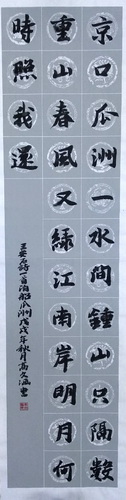 京口瓜洲一水間鍾山只隔數
重山春風又綠江南岸明月何
時照我還
王安石詩一首泊船瓜洲戊戌年秋月高久涵書